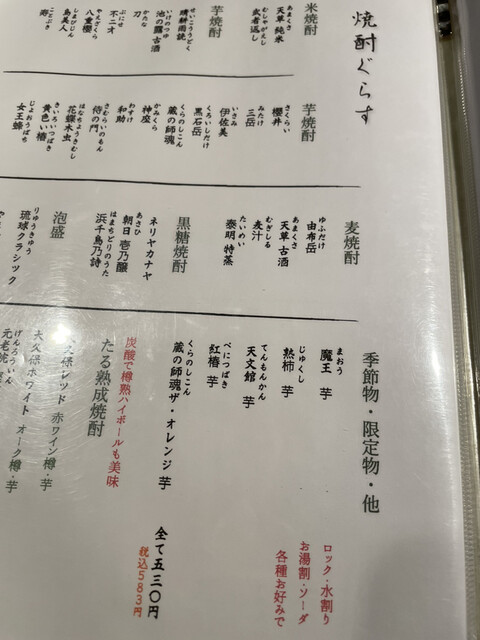 焼酎ぐらす
米焼酎
あまくさ
天草 純米
むしゃがえし
武者返し
芋焼酎
せいこううどく
晴耕雨読
いけのつゆ
池の露 古酒
かたな
刀
ぶにせ
不二才
やえざくら
八重櫻
しまびじん
島美人
ことぶき
寿
芋焼酎
さくらい
櫻井
みたけ
三岳
いさみ
伊佐美
くろいしだけ
黒石岳
くらのしこん
蔵の師魂
かみくら
神座
わすけ
和助
さむらいのもん
侍の門
はなちょうきむし
花蝶木虫
きいろいつばき
黄色い椿
じょおうばち
女王蜂
麦焼酎
ゆふだけ
由布岳
あまくさ
天草 古酒
むぎしる
麦汁
たいめい
泰明 特蒸
黒糖焼酎
ネリヤカナヤ
あさひ
朝日 壱乃醸
はまちどりのうた
浜千鳥乃詩
泡盛
りゅうきゅう
琉球クラシック
季節物・限定物・他
まおう
魔王 芋
じゅくし
熟柿 芋
てんもんかん
天文館 芋
べにつばき
紅椿 芋
くらのしこん
蔵の師魂 ザ・オレンジ 芋
ロック・水割り
お湯割・ソーダ
各種お好みで
全て五三〇円
税込583円
炭酸で樽熟ハイボールも美味
たる熟成焼酎
久保レッド 赤ワイン樽・芋
大久保ホワイト オーク樽・芋
げんろういん
元老院